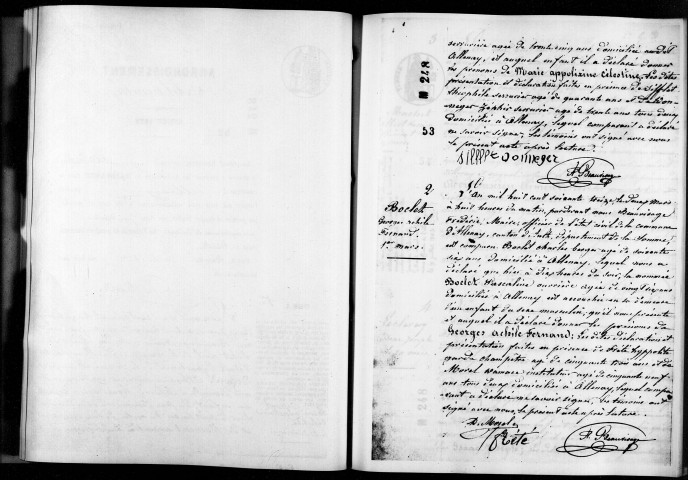 serrurière agée de trente cinq ans domiciliée audit
Allenay, et auquel enfant il a déclaré donner
le prénoms de Marie appolinine Celestine, les dites
présentation et déclaration faites en présence de
théophile serrurier agé de quarante ans et de
serrurier agé de trente ans tous deux
domiciliés à Allenay, lequel comparant a déclaré
ne savoir signer, les témoins ont signé avec nous
le présent acte après lecture.
N 248
53
F. Beauvisage
2
Boclet
Georges achile
Fernand.
1er mars.
L'an mil huit cent soixante seize, le deux mars
à huit heures du matin, pardevant nous Beauvisage
Frédéric, Maire, officier de l'état civil de la commune
d'Allenay, canton d'ault, département de la Somme,
est comparu Boclet Charles berger agé de soixante
six ans domicilié à Allenay, lequel nous a
déclaré que hier à dix heures du soir, la nommée
Boclet Pascaline ouvrière agée de vingt six ans
domiciliée à Allenay est accouchée en sa demeure
d'un enfant du sexe masculin, qu'il nous présente
et auquel il a déclaré donner les prénoms de
Georges achile Fernand; les dites déclaration et
présentation faites en présence de Fété hyppolite
garde champêtre agé de cinquante trois ans et de
Morel instituteur agé de cinquante neuf
ans tous deux domiciliés à Allenay, lequel compa
rant a déclaré ne savoir signer, les témoins ont
signé avec nous le présent acte après lecture.
D. Morel
Fété
F. Beauvisage